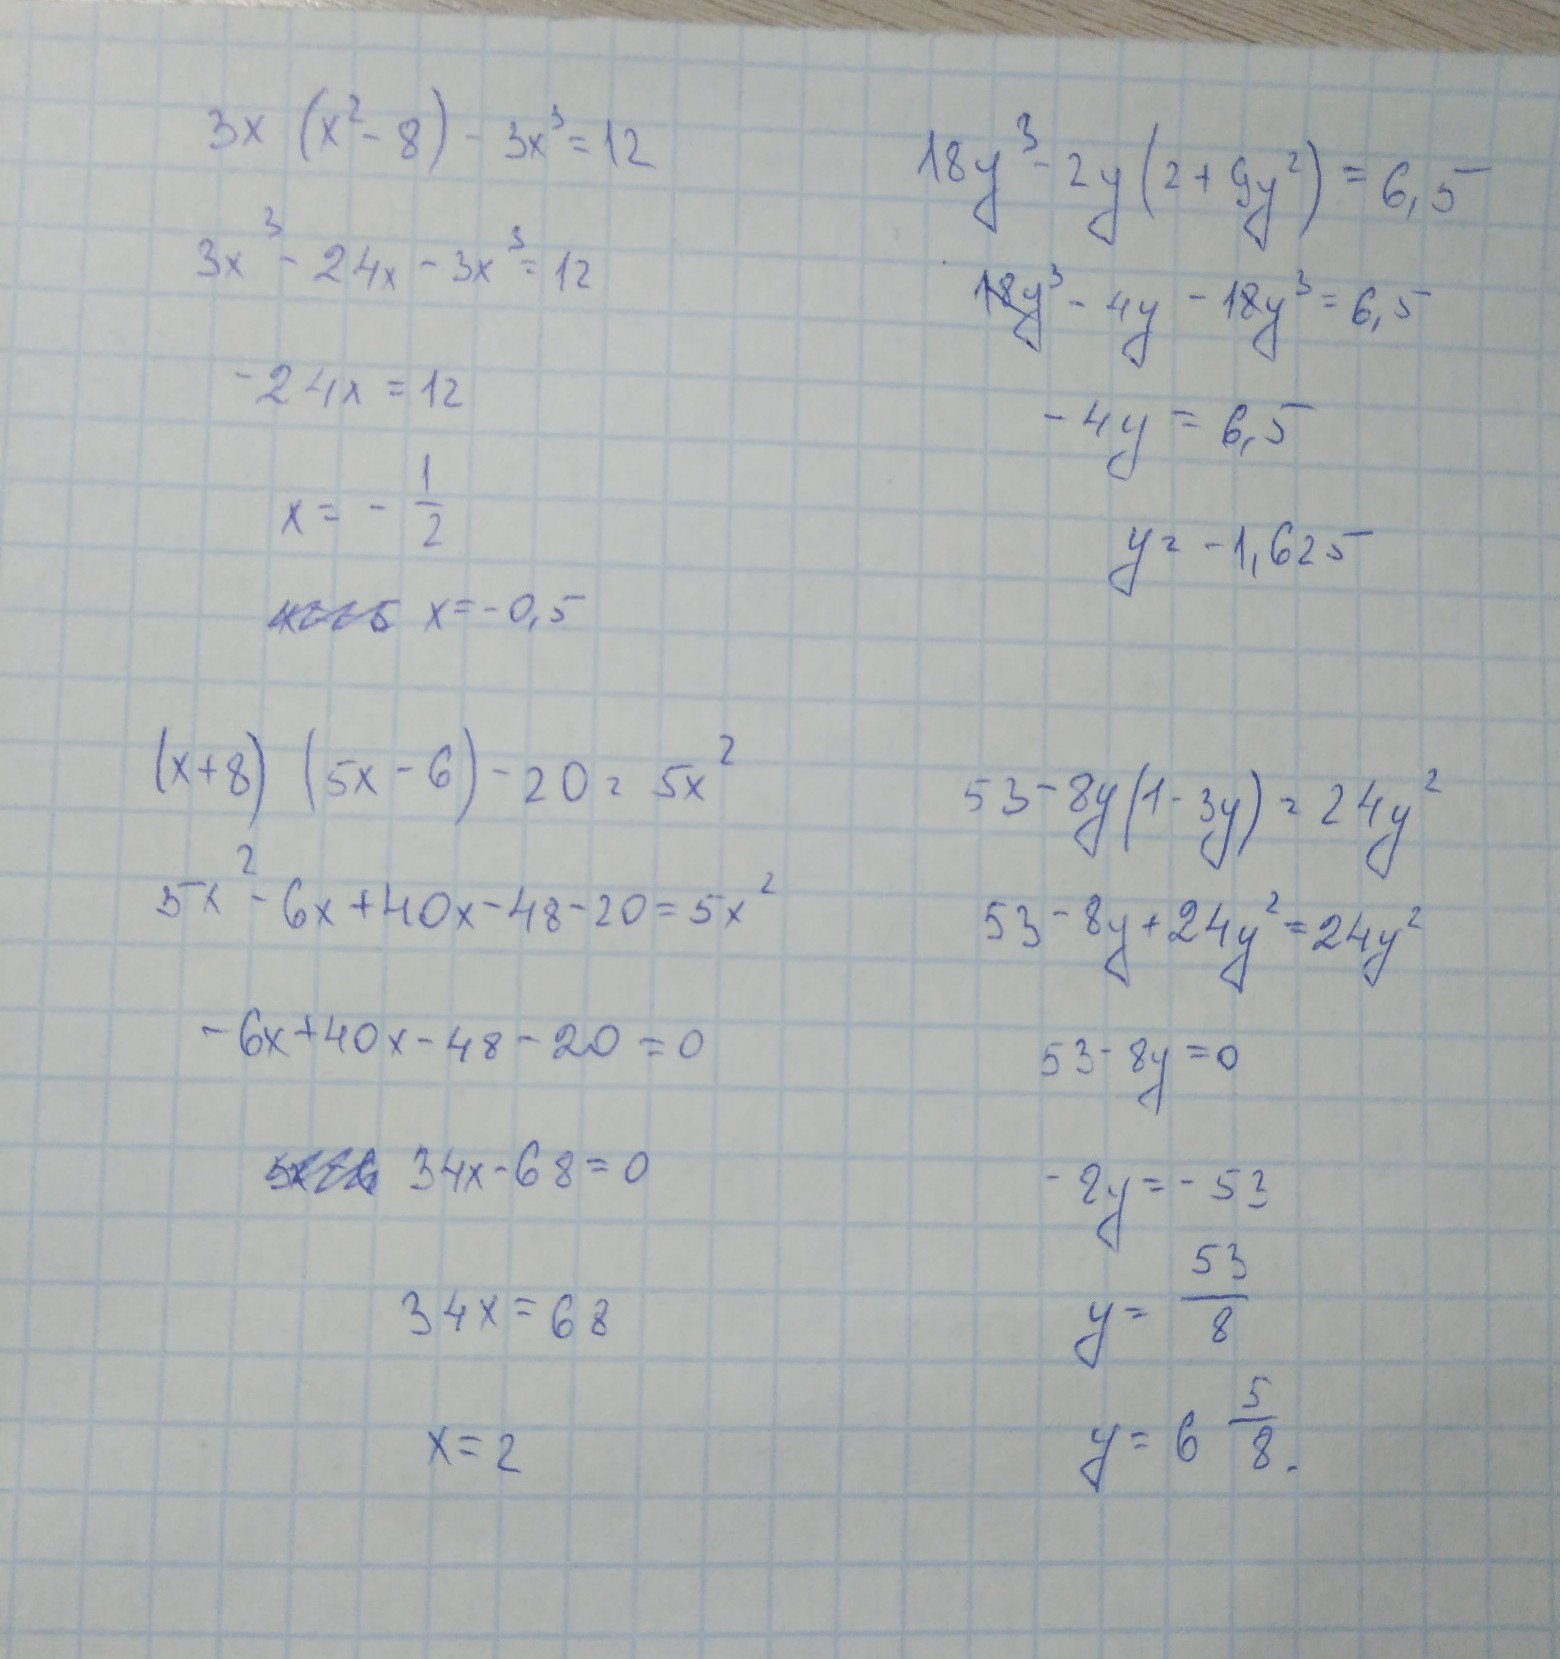 3x (x² - 8) - 3x³ = 12
3x³ - 24x - 3x³ = 12
-24x = 12
x = - 1/2
x = -0,5
18y³ - 2y (2 + 9y²) = 6,5
18y³ - 4y - 18y³ = 6,5
-4y = 6,5
y = -1,625
(x+8) (5x - 6) - 20 = 5x²
5x² - 6x + 40x - 48 - 20 = 5x²
-6x + 40x - 48 - 20 = 0
34x - 68 = 0
34x = 68
x = 2
53 - 8y (1 - 3y) = 24y²
53 - 8y + 24y² = 24y²
53 - 8y = 0
-8y = -53
y = 53/8
y = 6 5/8.